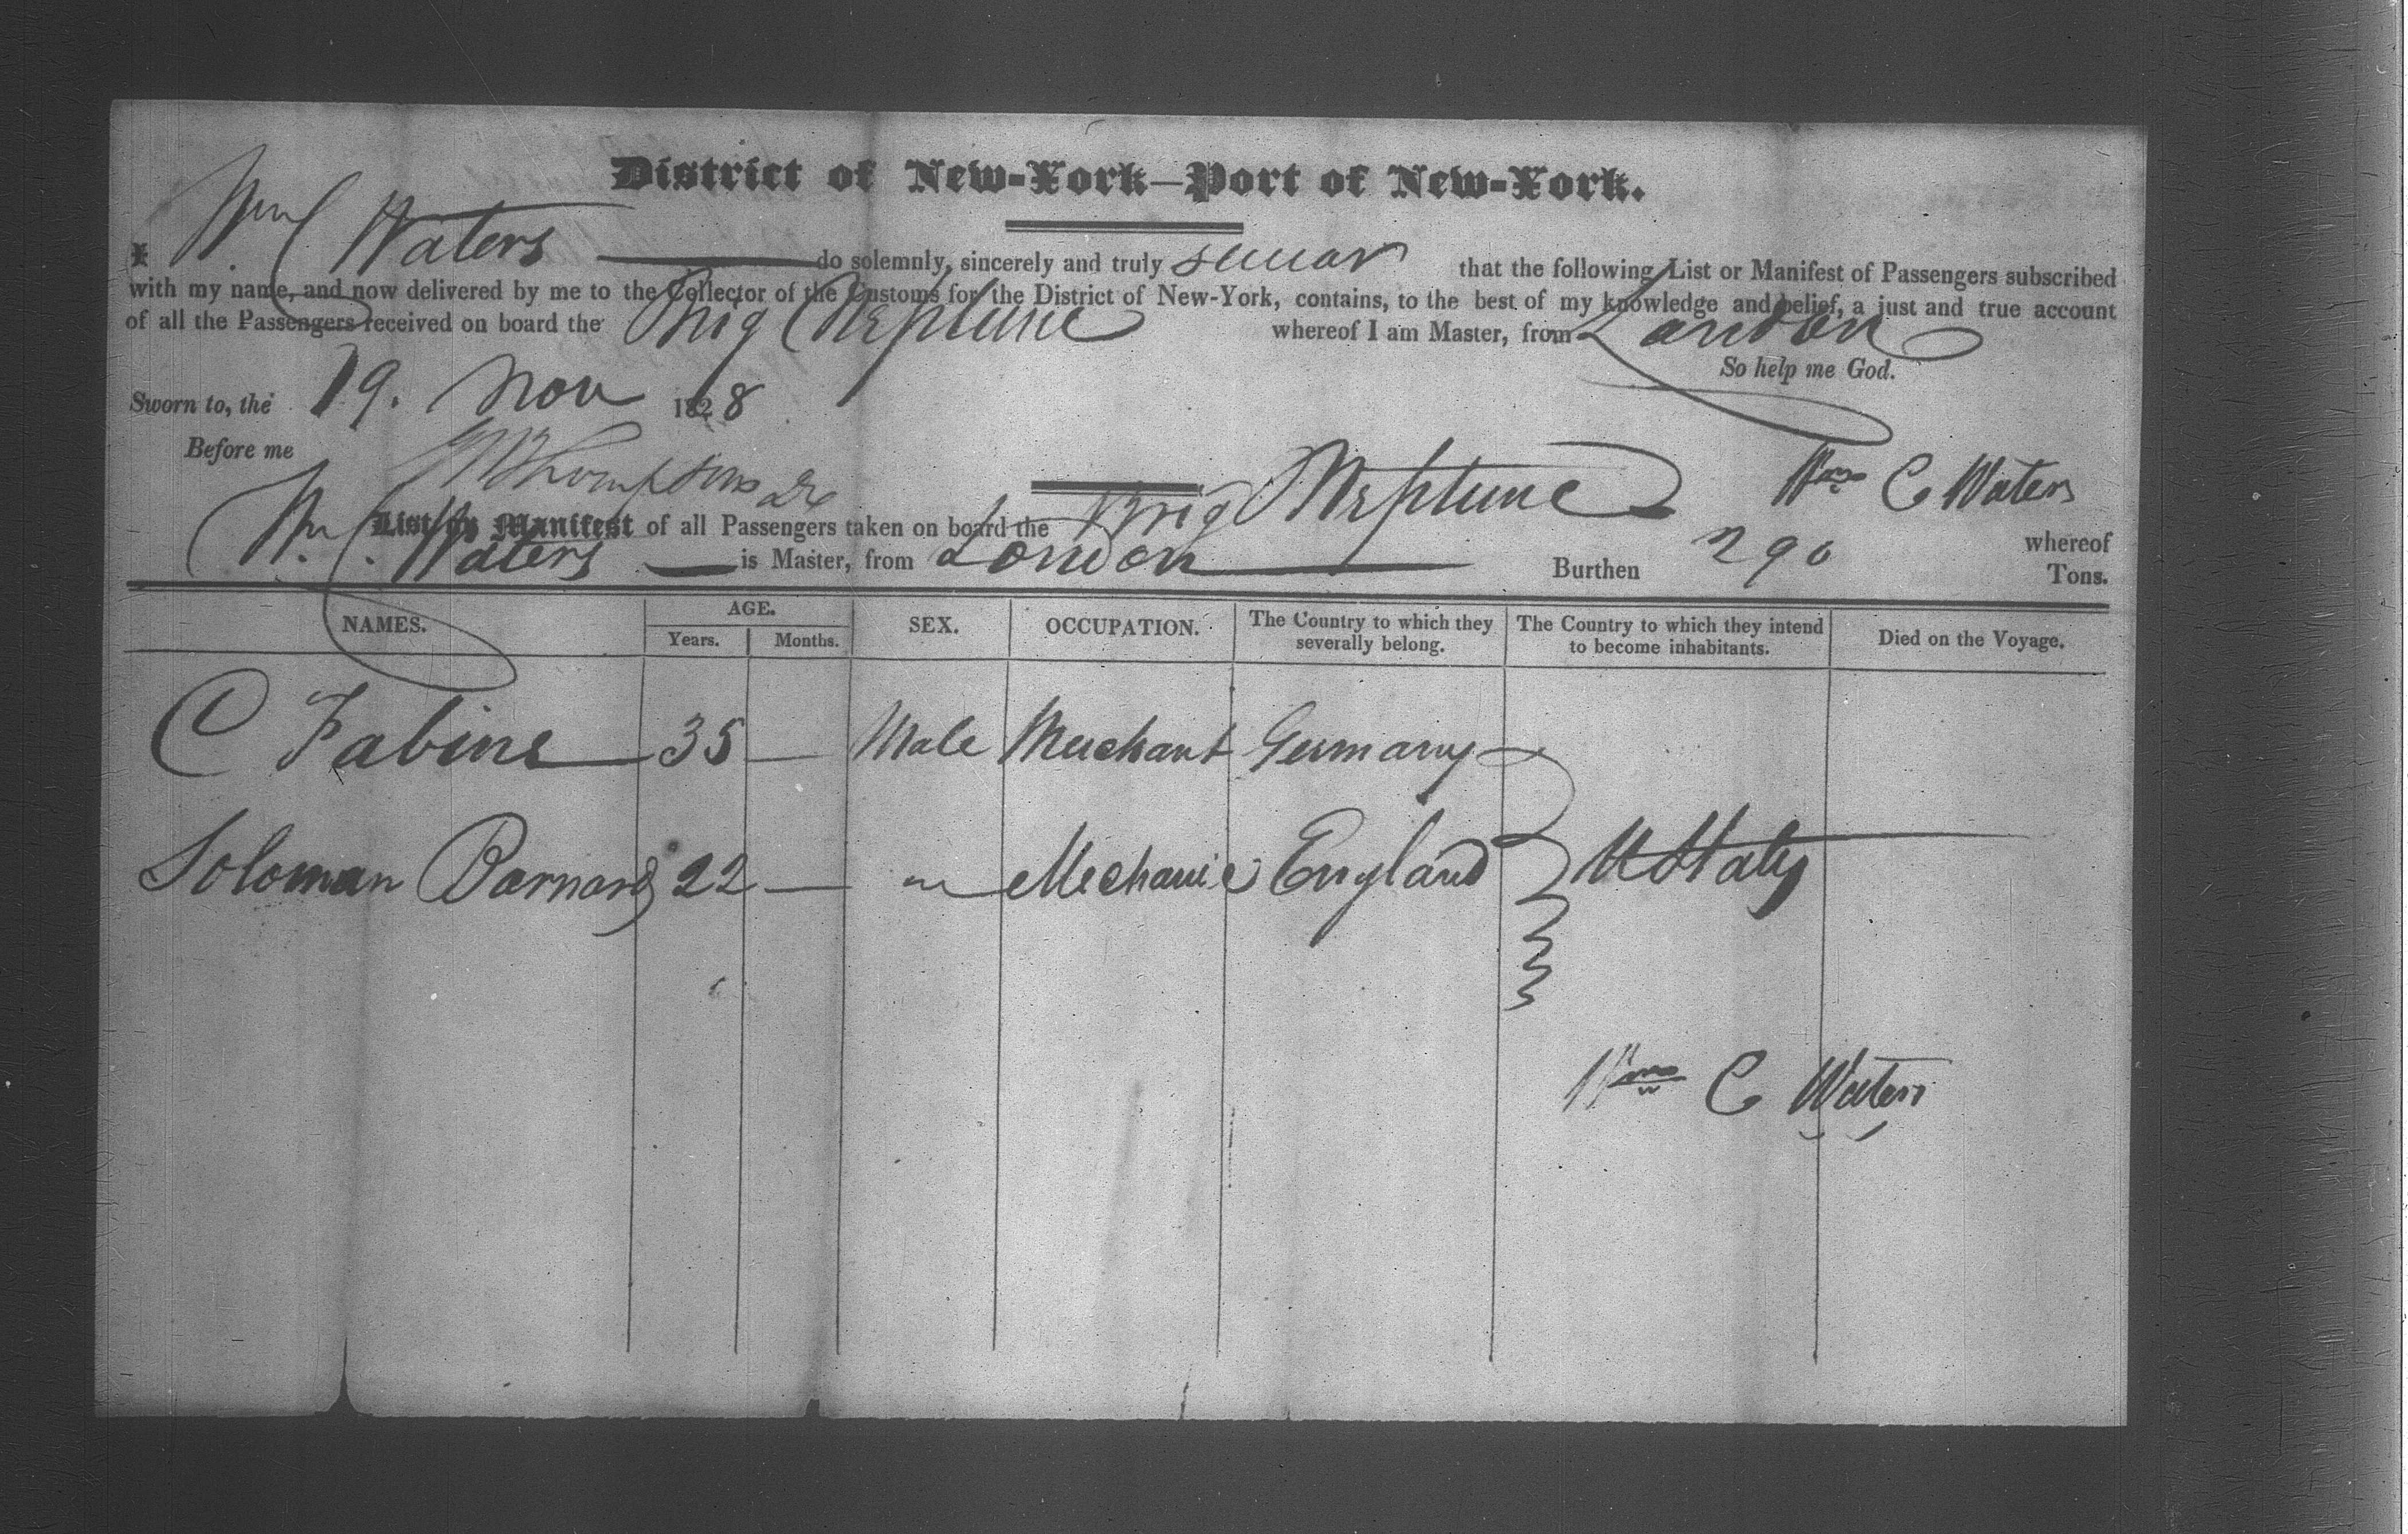 District of New-York—Port of New-York.
I Wm C Waters do solemnly, sincerely and truly swear that the following List or Manifest of Passengers subscribed
with my name, and now delivered by me to the Collector of the Customs for the District of New-York, contains, to the best of my knowledge and belief, a just and true account
of all the Passengers received on board the Brig Neptune whereof I am Master, from London
So help me God.
Sworn to, the 19. Nov 1828
Before me Thompson
Wm C Waters
List or Manifest of all Passengers taken on board the Brig Neptune whereof
Wm C. Waters is Master, from London Burthen 290 Tons.
NAMES. AGE. Years. Months. SEX. OCCUPATION. The Country to which they severally belong. The Country to which they intend to become inhabitants. Died on the Voyage.
C Fabine 35 — Male Merchant Germany
Soloman Barnard 22 — Mechanic England U States
Wm C Waters